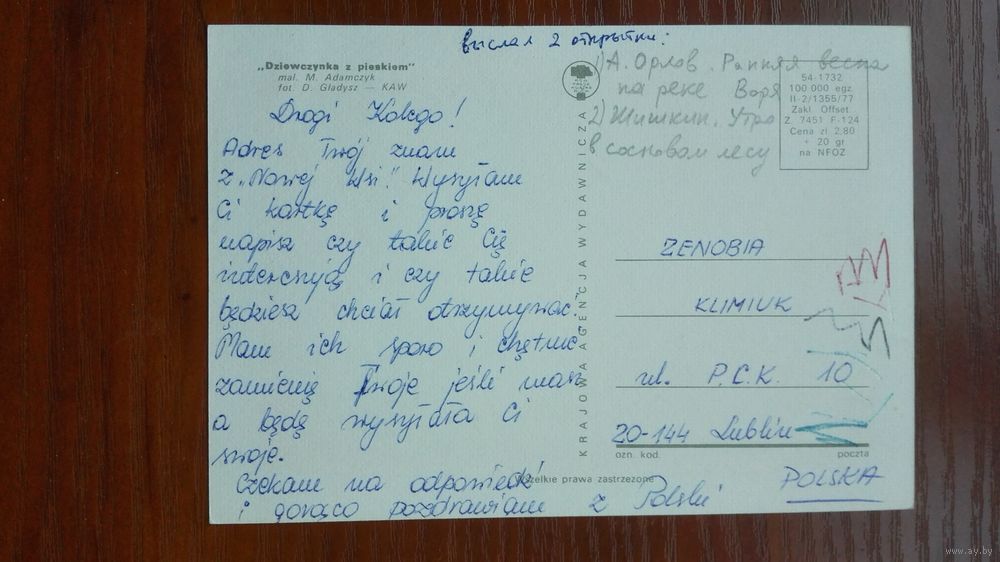 выслал 2 открытки:
1) А. Орлов. Ранняя весна
на реке Воря
2) Шишкин. Утро
в сосновом лесу
„Dziewczynka z pieskiem"
mal. M. Adamczyk
fot. D. Gładysz — KAW
Drogi Kolego!
Adres Twój znam
z „Nowej Wsi". Wysyłam
Ci kartkę i proszę
napisz czy takie Cię
interesują i czy takie
będziesz chciał otrzymywać.
Mam ich sporo i chętnie
zamienię Twoje jeśli masz
a będę wysyłała Ci
swoje.
Czekam na odpowiedź
i gorąco pozdrawiam z Polski
KRAJOWA AGENCJA WYDAWNICZA
Wszelkie prawa zastrzeżone
54-1732
100 000 egz
II-2/1355/77
Zakł. Offset
Z. 7451 F-124
Cena zł 2,80
+ 20 gr
na NFOZ
ZENOBIA
KLIMIUK
ul. P.C.K. 10
20-144 Lublin
ozn. kod. poczta
POLSKA
www.ay.by